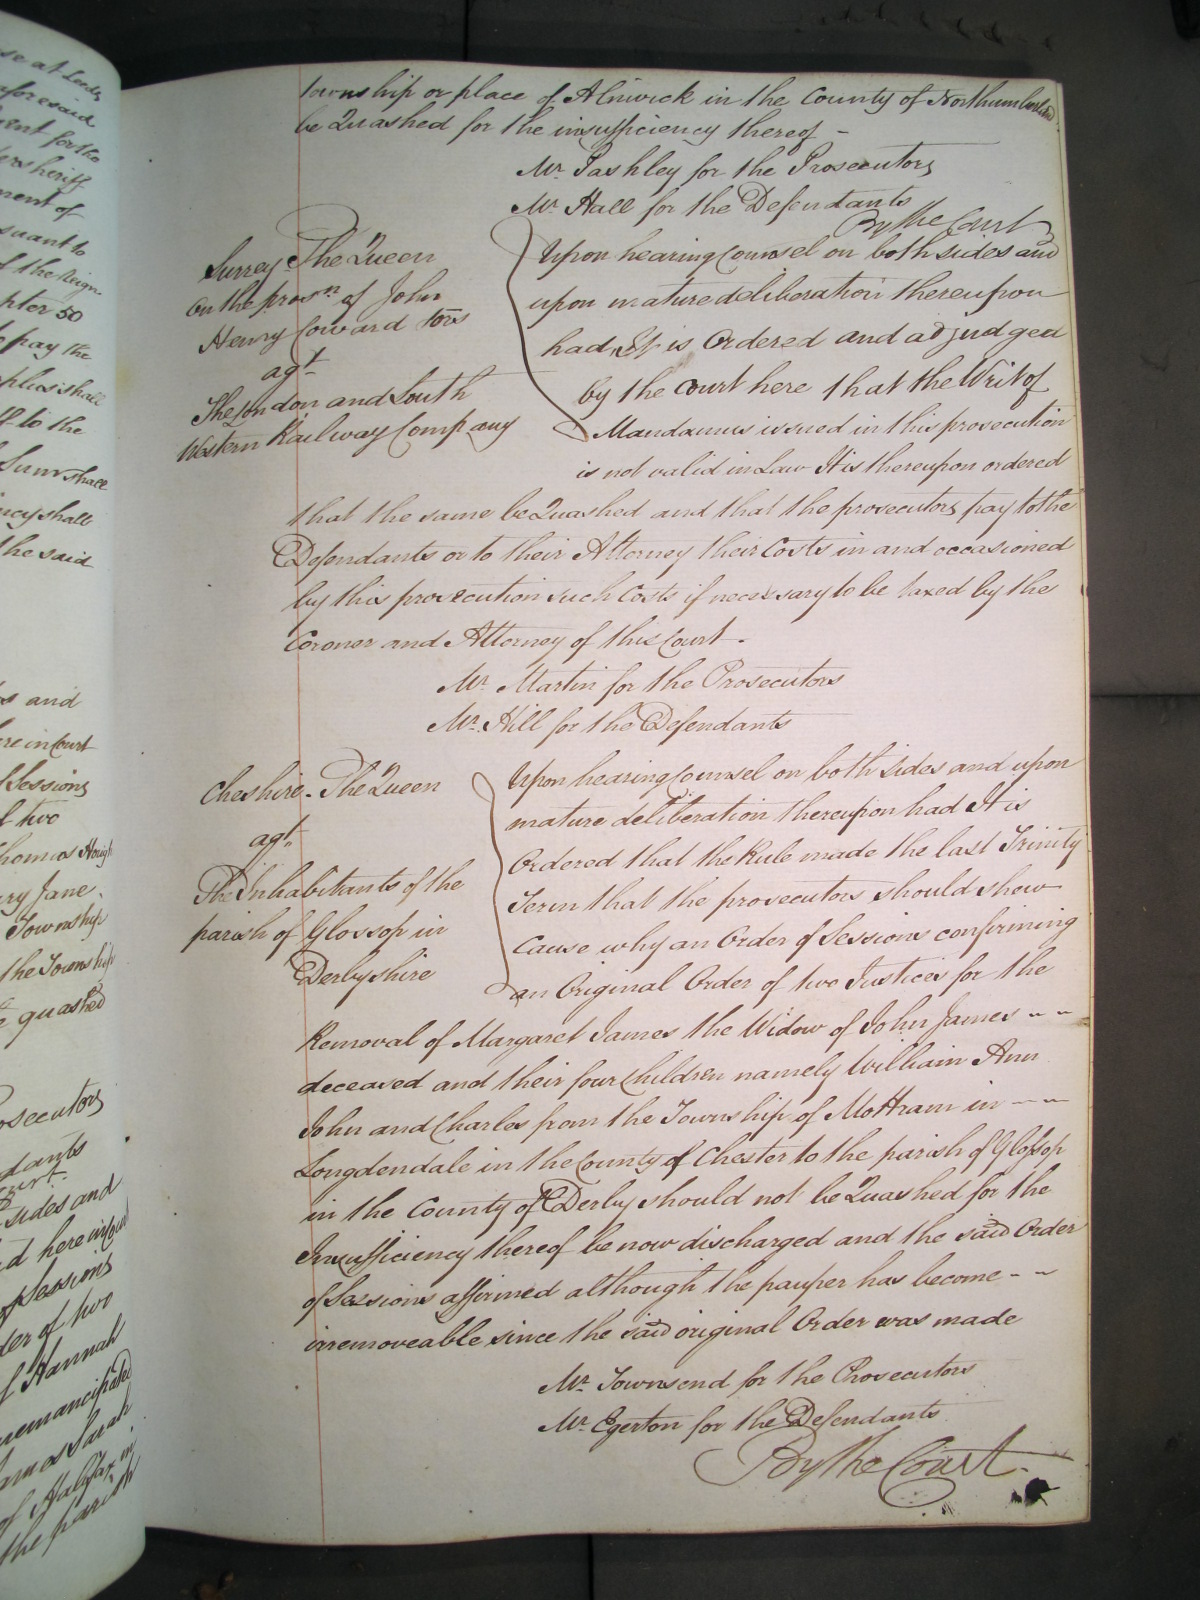 township or place of Alnwick in the County of Northumberland
be Quashed for the insufficiency thereof -
Mr. Pashley for the Prosecutors
Mr. Hall for the Defendants
By the Court
Surrey. The Queen
on the prosn. of John
Henry Coward tors
agt.
The London and South
Western Railway Company
Upon hearing Counsel on both sides and
upon mature deliberation thereupon
had, It is Ordered and adjudged
by the Court here that the Writ of
Mandamus issued in this prosecution
is not valid in Law It is thereupon ordered
that the same be Quashed and that the prosecutors pay to the
Defendants or to their Attorney their Costs in and occasioned
by this prosecution such Costs if necessary to be taxed by the
Coroner and Attorney of this Court.
Mr. Martin for the Prosecutors
Mr. Hill for the Defendants
Cheshire. The Queen
agt.
The Inhabitants of the
parish of Glossop in
Derbyshire
Upon hearing Counsel on both sides and upon
mature deliberation thereupon had It is
Ordered that the Rule made the last Trinity
Term that the prosecutors should show
Cause why an Order of Sessions confirming
an Original Order of two Justices for the
Removal of Margaret James the Widow of John James - -
deceased and their four Children namely William Ann
John and Charles from the Township of Mottram in - -
Longdendale in the County of Chester to the parish of Glossop
in the County of Derby should not be Quashed for the
Insufficiency thereof be now discharged and the said Order
of Sessions affirmed although the pauper has become - -
irremoveable since the said original Order was made
Mr. Townsend for the Prosecutors
Mr. Egerton for the Defendants
By the Court.